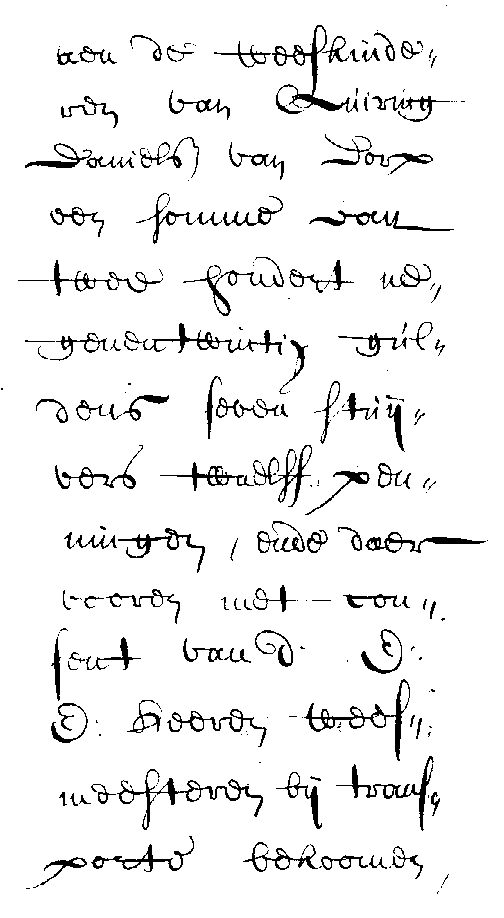 aen de weeskinde„
ren van Quiring
Daniels van Dorp
een somme van
twee hondert ne„
genentwintig gul„
dens seven stuij„
vers twaelff pen„
ningen, ende daer
vooren met con„
sent van d. E:
E: Heeren wees„
meesteren bij trans„
porte bekoomen,